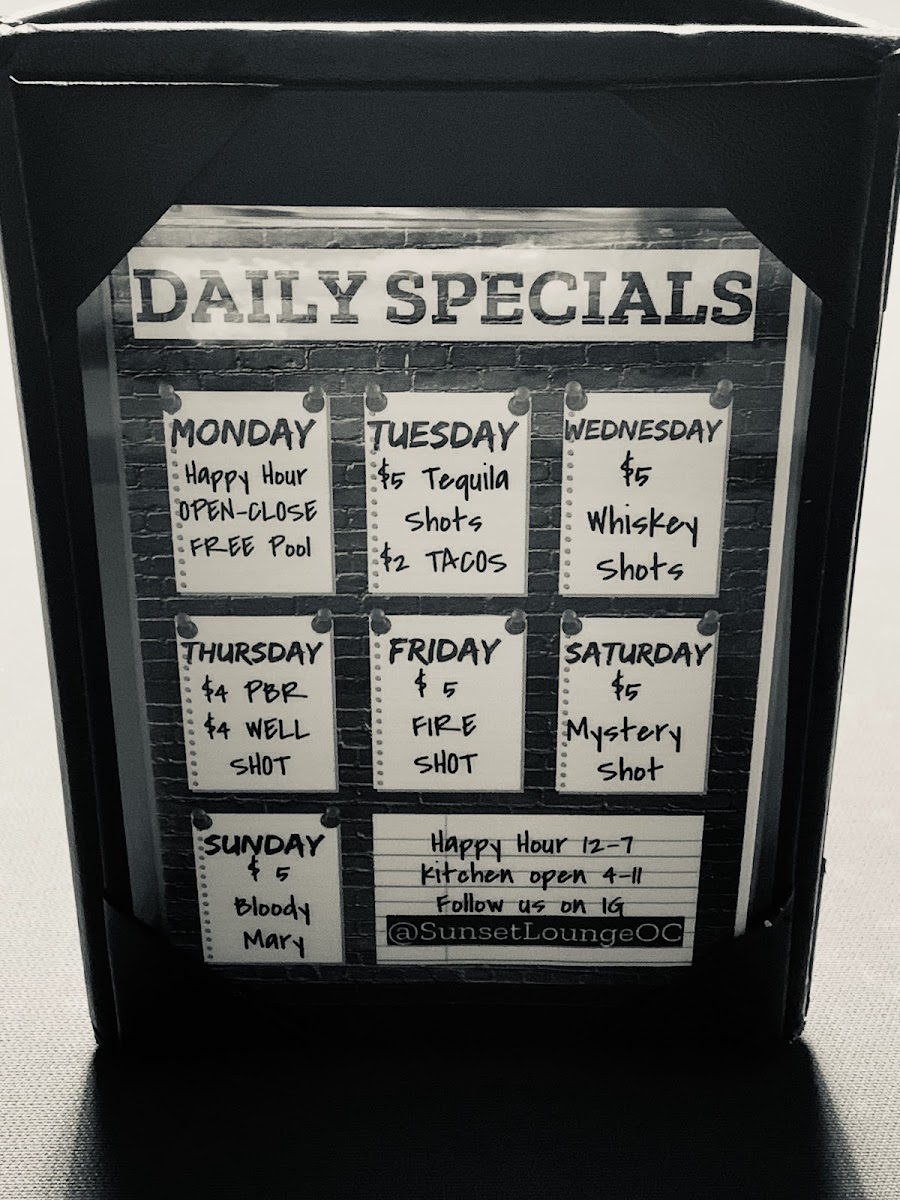 DAILY SPECIALS
MONDAY
Happy Hour
OPEN-CLOSE
FREE Pool
TUESDAY
$5 Tequila
Shots
$2 TACOS
WEDNESDAY
$5
Whiskey
Shots
THURSDAY
$4 PBR
$4 WELL
SHOT
FRIDAY
$ 5
FIRE
SHOT
SATURDAY
$5
Mystery
Shot
SUNDAY
$ 5
Bloody
Mary
Happy Hour 12-7
Kitchen open 4-11
Follow us on IG
@SunsetLoungeOC